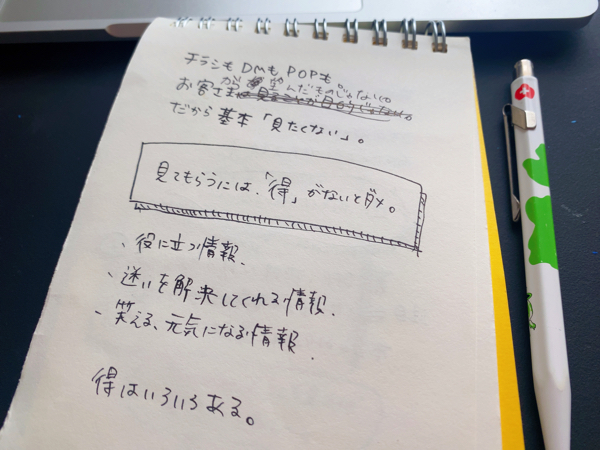 チラシもDMもPOPも
お客さまが んだものじゃない。
だから基本「見たくない」。
見てもらうには、「得」がないとダメ。
・役に立つ情報.
・迷いを解決してくれる情報.
・笑える、元気になる情報.
得はいろいろある。